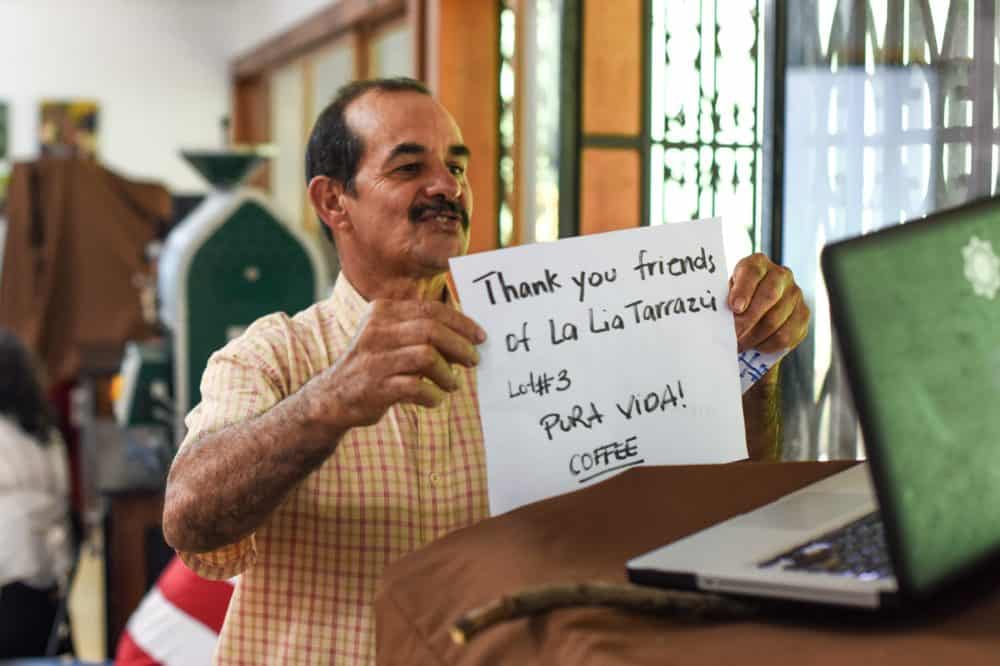 Thank you friends
of La Lia Tarrazú
Lot#3
PURA VIDA!
COFFEE